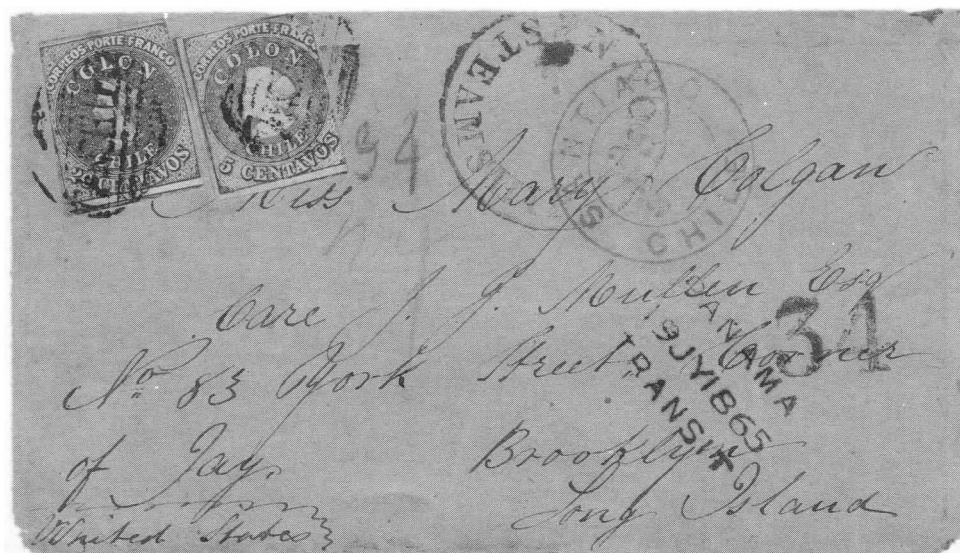 CORREOS PORTE FRANCO
COLON
CHILE
CENTAVOS
CORREOS PORTE FRANCO
COLON
CHILE
5 CENTAVOS
STEAMS
SANTIAGO
CHIL
34
Miss Mary Colgan
Care J. J. Esq
No 83 York Street, Corner
of Jay, Brooklyn
Long Island
United States
PANAMA
9JY1865
TRANSIT
34